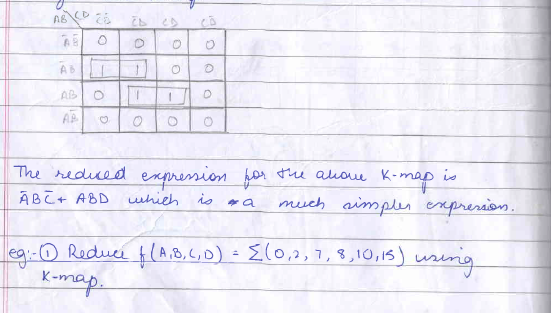 AB\CD C̄D̄ C̄D CD CD̄
ĀB̄ 0 0 0 0
ĀB 1 1 0 0
AB 0 1 1 0
AB̄ 0 0 0 0
The reduced expression for the above K-map is
ĀBC̄ + ABD which is a much simpler expression.
eg:- ① Reduce f(A,B,C,D) = Σ(0,2,7,8,10,15) using
K-map.